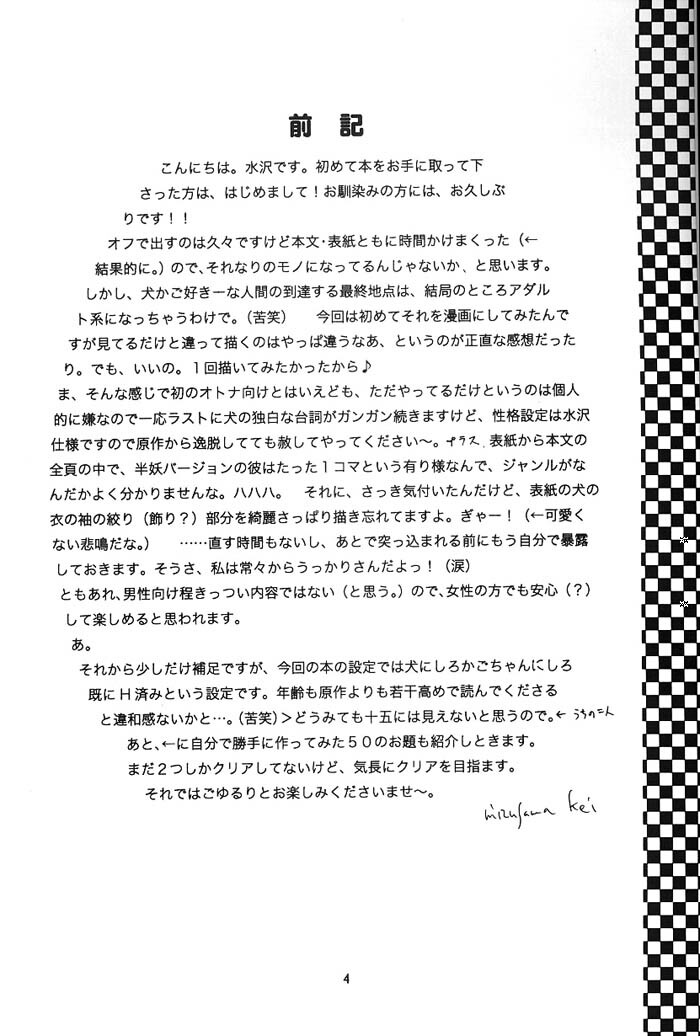 前 記
こんにちは。水沢です。初めて本をお手に取って下
さった方は、はじめまして！お馴染みの方には、お久しぶ
りです！！
オフで出すのは久々ですけど本文・表紙ともに時間かけまくった（←
結果的に。）ので、それなりのモノになってるんじゃないか、と思います。
しかし、犬かご好きーな人間の到達する最終地点は、結局のところアダル
ト系になっちゃうわけで。（苦笑） 今回は初めてそれを漫画にしてみたんで
すが見てるだけと違って描くのはやっぱ違うなあ、というのが正直な感想だった
り。でも、いいの。１回描いてみたかったから♪
ま、そんな感じで初のオトナ向けとはいえども、ただやってるだけというのは個人
的に嫌なので一応ラストに犬の独白な台詞がガンガン続きますけど、性格設定は水沢
仕様ですので原作から逸脱してても赦してやってください～。プラス、表紙から本文の
全頁の中で、半妖バージョンの彼はたった１コマという有り様なんで、ジャンルがな
んだかよく分かりませんな。ハハハ。 それに、さっき気付いたんだけど、表紙の犬の
衣の袖の絞り（飾り？）部分を綺麗さっぱり描き忘れてますよ。ぎゃー！（←可愛く
ない悲鳴だな。） ……直す時間もないし、あとで突っ込まれる前にもう自分で暴露
しておきます。そうさ、私は常々からうっかりさんだよっ！（涙）
ともあれ、男性向け程きっつい内容ではない（と思う。）ので、女性の方でも安心（？）
して楽しめると思われます。
あ。
それから少しだけ補足ですが、今回の本の設定では犬にしろかごちゃんにしろ
既にＨ済みという設定です。年齢も原作よりも若干高めで読んでくださる
と違和感ないかと…。（苦笑）＞どうみても十五には見えないと思うので。← うちの二人
あと、←に自分で勝手に作ってみた５０のお題も紹介しときます。
まだ２つしかクリアしてないけど、気長にクリアを目指します。
それではごゆるりとお楽しみくださいませ～。
mizusawa kei
4